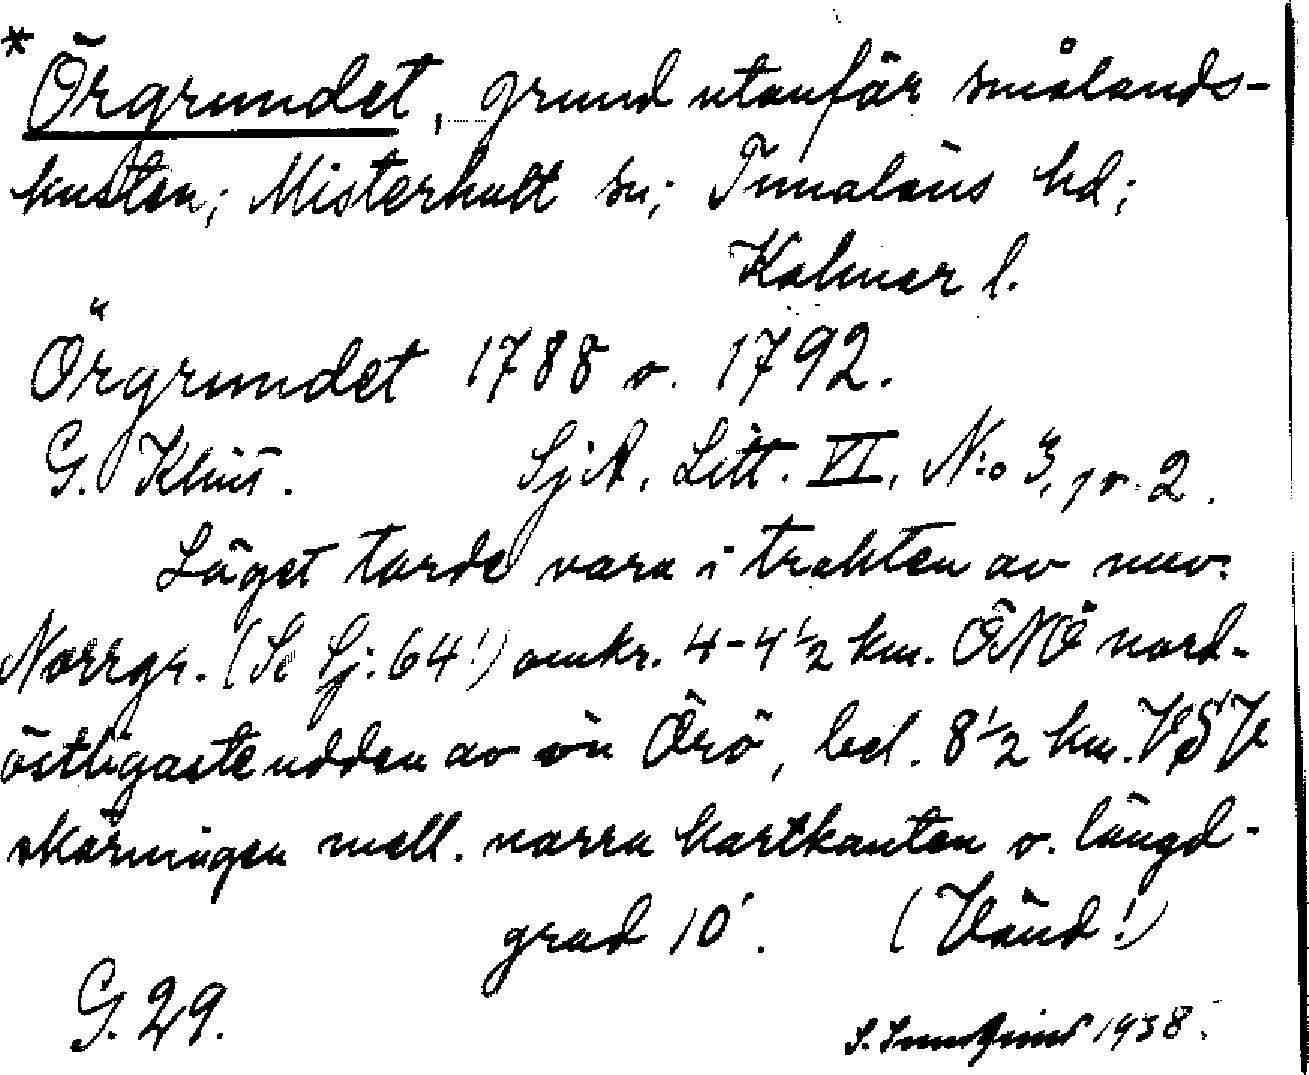 *Örgrundet, grund utanför smålands-
kusten; Misterhult sn; Tunaläns hd;
Kalmar l.
Örgrundet 1788 o. 1792.
G. Klint. SjA, Litt. VI, N:o 3, 1 o. 2.
Läget torde vara i trakten av nuv.
Norrgr. (Se Sj: 64!) omkr. 4-4½ km. ÖNÖ nord-
östligaste udden av ön Örö, bel. 8½ km. VSV
skärningen mell. norra kartkanten o. längd-
grad 10'. (Vänd!)
G. 29.
1938.